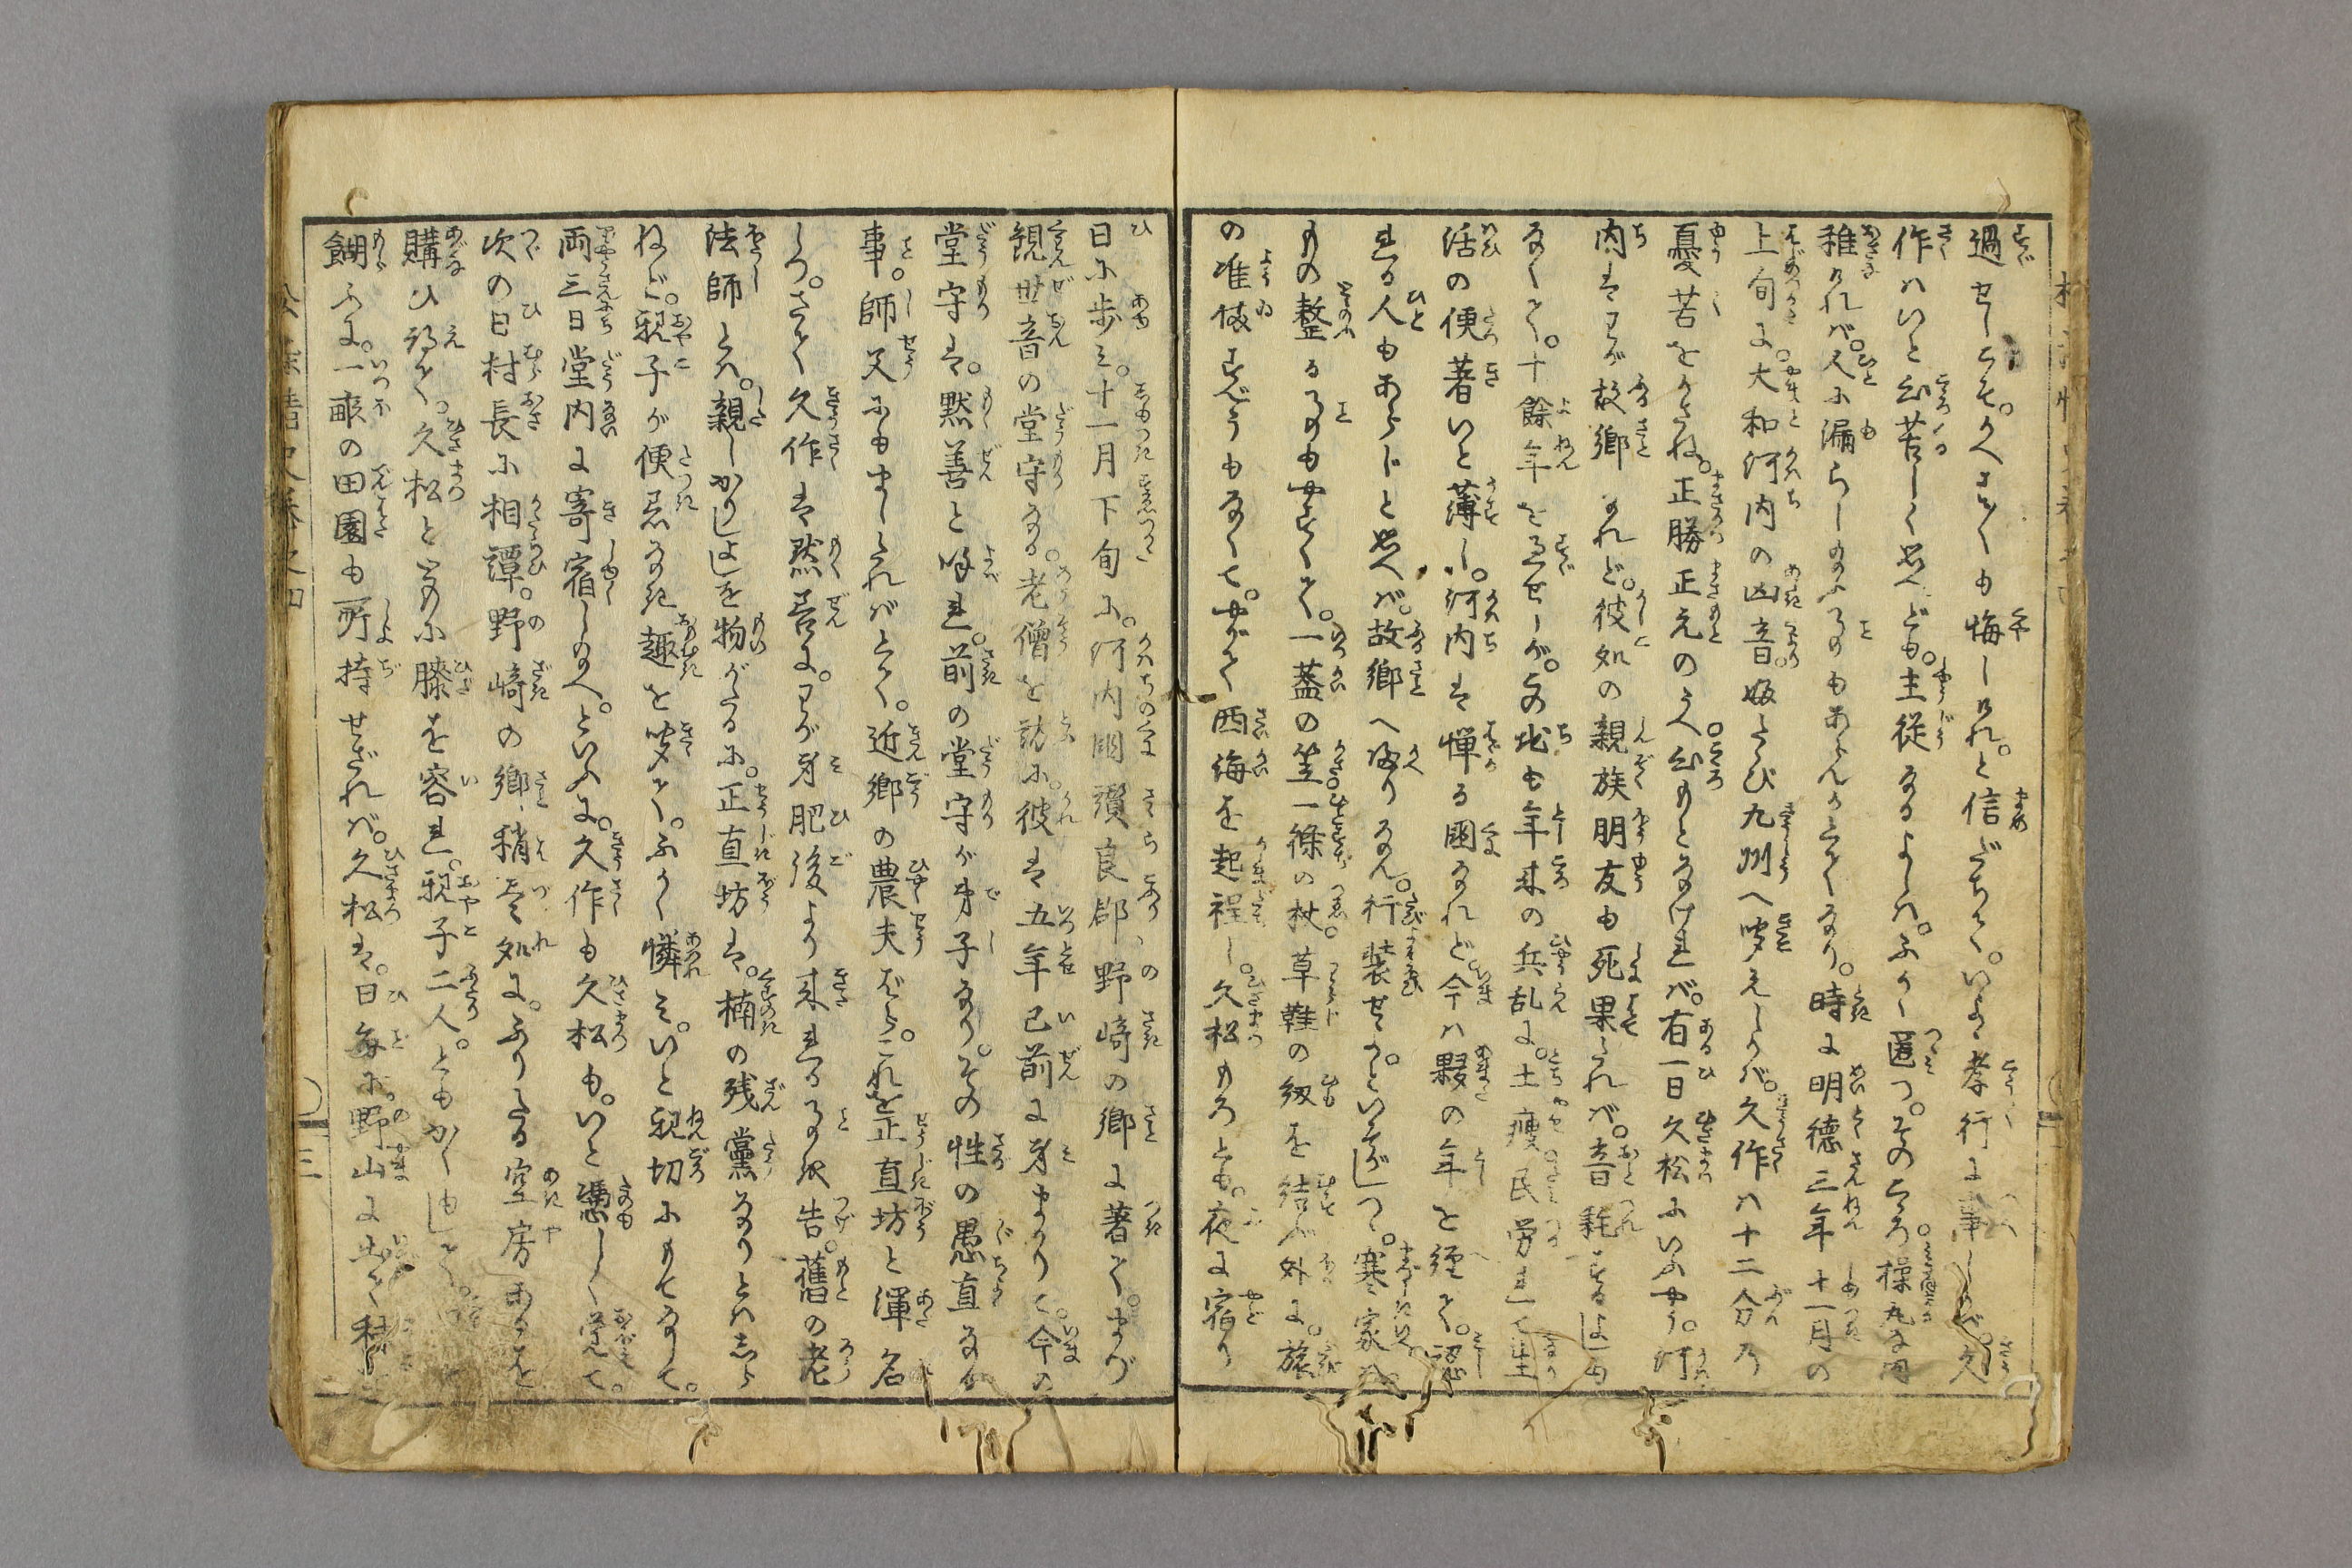 過せしらそ。かへす〴〵も悔しけれ。と信だちて。いよゝ孝行に事しかば。久
作はいと心苦しく思へども。主従なるよしは。ふかく匿つ。そのころ操丸は
稚ければ。人に漏らしのふ事もあらんかとてなり。時に明徳三年十一月の
上旬に。大和河内の凶音。ふたゝび九州へ聞えしかば。久作は十二分の
憂苦をかさね。正勝正元のうへ心もとなければ。有一日久松にいふやう。河
内はわが故郷なれど。彼処の親族朋友も死果たれば。音耗するよしも
なくて。十餘年を過せしが。この地も年来の兵乱に。土痩民労れて生
活の便著いと薄し。河内は憚る國なれど。今は夥の年を経て。認
れる人もあらじと思へば。故郷へ帰りなん。行装せよ。といそがしつ。寒家は
もの整る事も安くて。一蓋の笠一條の杖。草鞋の紐を結ぶ外に。旅
の准備すべうもなくて。やがて西海を起程し。久松もろとも。夜に宿り
日に歩み。十一月下旬に。河内国讃良郡、野崎の郷に著て。まづ
観世音の堂守なる。老僧を訪に。彼は五年已前に身まかりて。今の
堂守は。黙善と呼れ。前の堂守が弟子なり。その性の愚直なる
事。師父にもましたればとて。近郷の農夫ばら。これを正直坊と渾名
しつ。さて久作は黙善に。わが身肥後より来れる事を告。舊の老
法師とは。親しかりしよしを物がたるに。正直坊は。楠の残黨なりとはしら
ねど。親子が便悪なき趣を聞て。ふかく憐み。いと親切にもてなして。
両三日堂内に寄宿しめ給へ。といふに。久作も久松も。いと憑しく覚て。
次の日村長に相譚。野崎の郷、稍尽処に。ふりたる空房あるを
購ひ得て。久松とゝもに膝を容れ。親子二人。ともかくもして。
餬ふに。一畝の田園も所持せざれば。久松は。日毎に。野山に出て
三